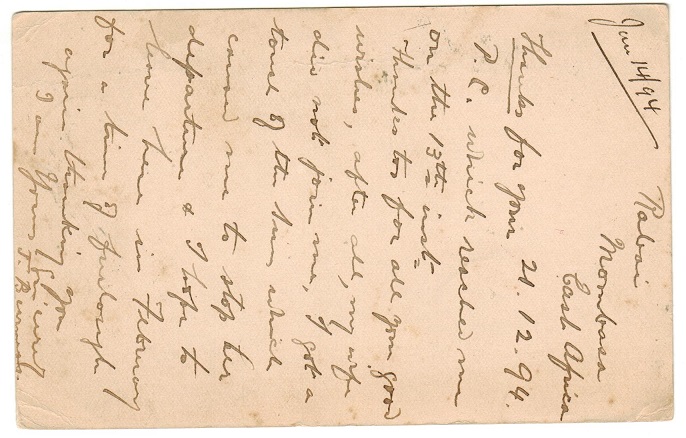 Jan 14/94
Rabai
Mombasa
East Africa
Thanks for your 21.12.94.
P.C. which reached me
on the 13th inst.
Thanks too for all your good
wishes, after all, my wife
did not join me, I got a
touch of the sun which
caused me to stop her
departure & I hope to
leave here in February
for a time of furlough
again thanking you
I am Yours
J. Burness.